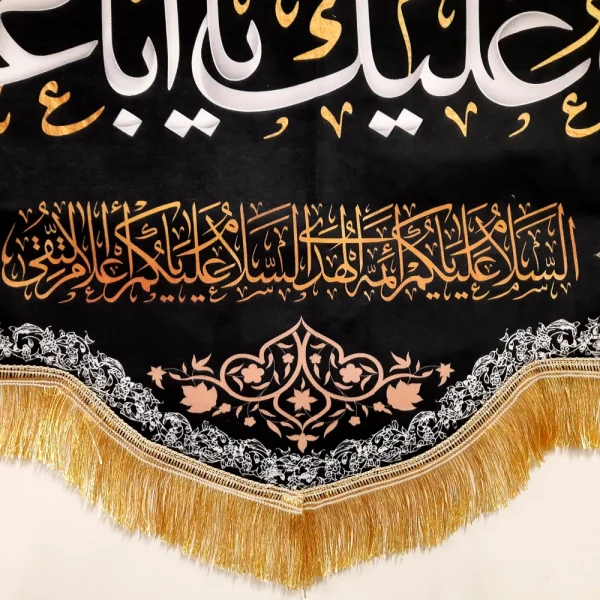 عليك يا أبا
السَّلامُ عَلَيْكُمْ أَئِمَّةَ الهُدَى السَّلامُ عَلَيْكُمْ أَعْلامَ التُّقَى